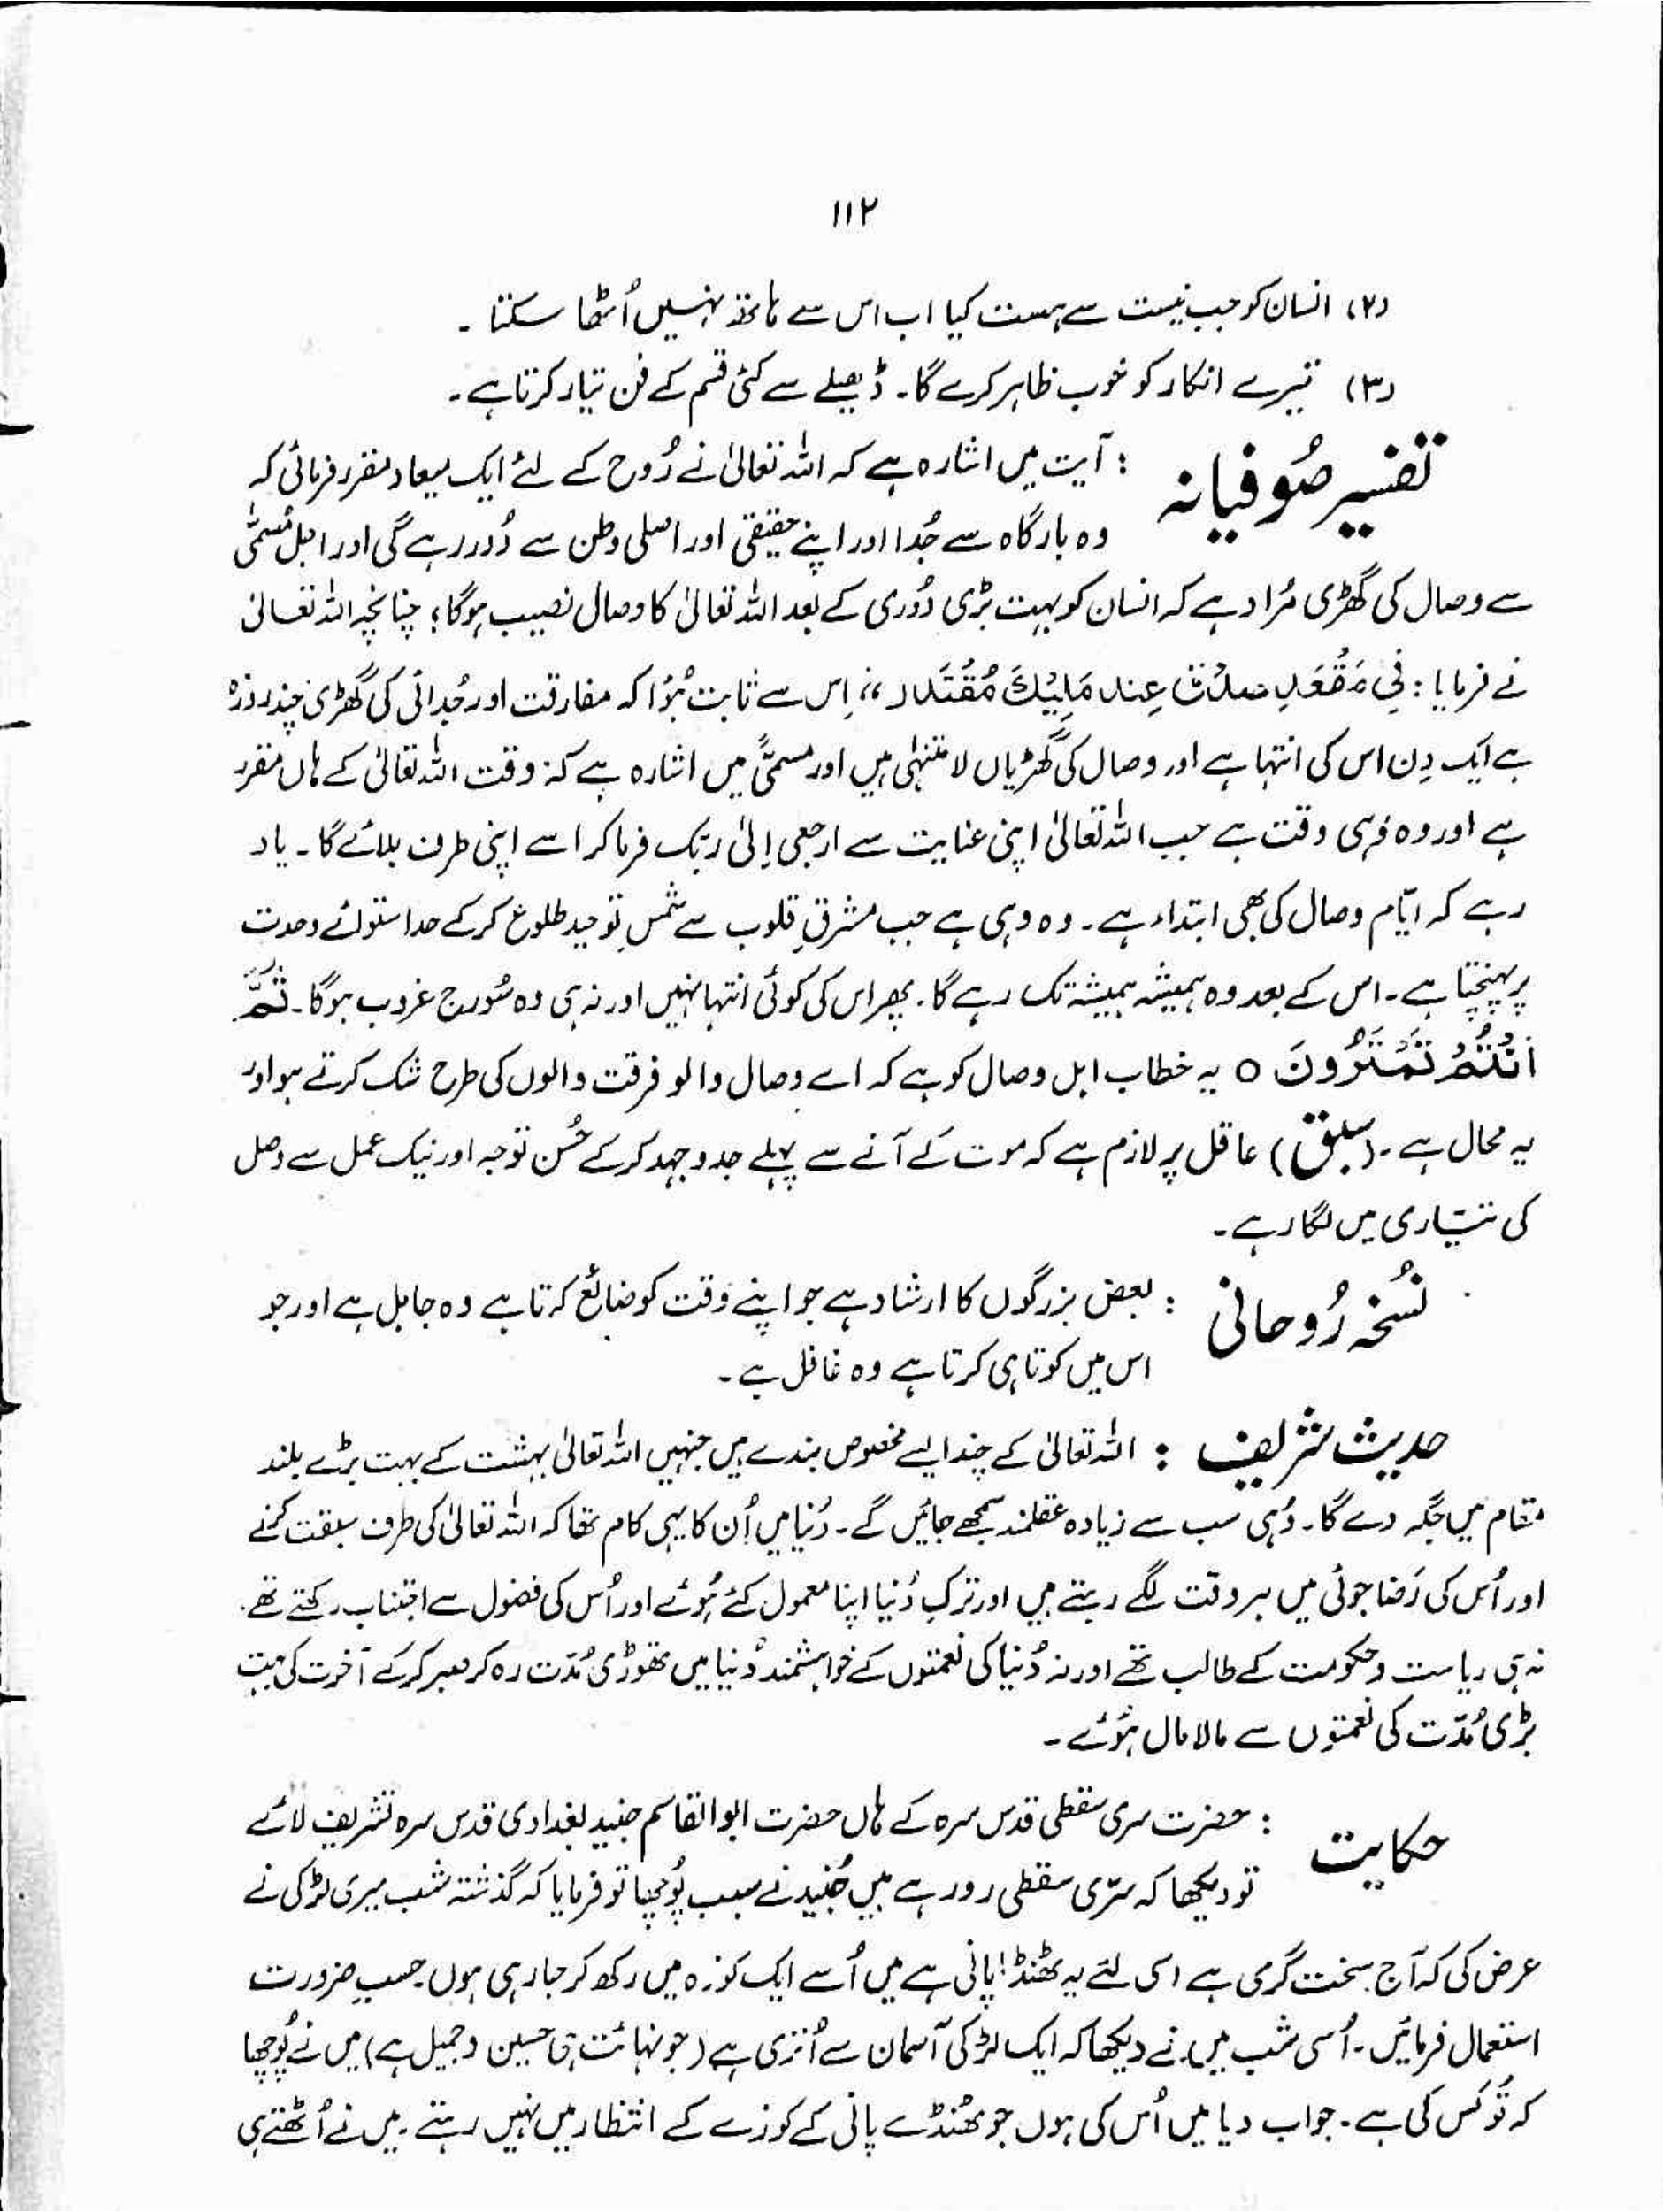 ۱۱۲
(۲) انسان کو جب نیست سے ہست کیا اب اس سے ہاتھ نہیں اُٹھا سکتا ۔
(۳) تیرے انکار کو خوب ظاہر کرے گا۔ ڈھیلے سے کئی قسم کے فن تیار کرتا ہے ۔
تفسیر صُوفیانہ : آیت میں اشارہ ہے کہ اللہ تعالیٰ نے رُوح کے لئے ایک میعاد مقرر فرمائی کہ
وہ بارگاہ سے جُدا اور اپنے حقیقی اور اصلی وطن سے دُور رہے گی اور اجل مُسمّٰی
سے وصال کی گھڑی مُراد ہے کہ انسان کو بہت بڑی دُوری کے بعد اللہ تعالیٰ کا وصال نصیب ہوگا؛ چنانچہ اللہ تعالیٰ
نے فرمایا : فِی مَقْعَدِ صدْق عِند مَلِیْكَ مُقْتَدر ،، اِس سے ثابت ہُوا کہ مفارقت اور جُدائی کی گھڑی چند روزہ
ہے ایک دِن اس کی انتہا ہے اور وصال کی گھڑیاں لا متنہٰی ہیں اور مسمّٰی میں اشارہ ہے کہ وقت اللہ تعالیٰ کے ہاں مقرر
ہے اور وہ وُہی وقت ہے جب اللہ تعالیٰ اپنی عنایت سے ارجعی اِلیٰ ربک فرما کر اسے اپنی طرف بلائے گا ۔ یاد
رہے کہ ایّام وصال کی بھی ابتداء ہے ۔ وہ وہی ہے جب مشرقِ قلوب سے شمسِ توحید طلوع کر کے حد استوائے وحدت
پر پہنچتا ہے ۔ اس کے بعد وہ ہمیشہ ہمیشہ تک رہے گا ۔ پھر اس کی کوئی انتہا نہیں اور نہ ہی وہ سُورج غروب ہوگا ۔ ثُمَّ
اَنْتُمْ تَمْتَرُونَ ○ یہ خطاب اہل وصال کو ہے کہ اے وصال والو فرقت والوں کی طرح شک کرتے ہو اور
یہ محال ہے ۔ (سبق) عاقل پر لازم ہے کہ موت کے آنے سے پہلے جدوجہد کر کے حُسن توجہ اور نیک عمل سے وصل
کی تیّاری میں لگا رہے ۔
نُسخہ رُوحانی : بعض بزرگوں کا ارشاد ہے جو اپنے وقت کو ضائع کرتا ہے وہ جاہل ہے اور جو
اس میں کوتاہی کرتا ہے وہ غافل ہے ۔
حدیث شریف : اللہ تعالیٰ کے چند ایسے مخصوص بندے ہیں جنہیں اللہ تعالیٰ بہشت کے بہت بڑے بلند
مقام میں جگہ دے گا ۔ وُہی سب سے زیادہ عقلمند سمجھے جائیں گے ۔ دُنیا میں اُن کا یہی کام تھا کہ اللہ تعالیٰ کی طرف سبقت کرنے
اور اُس کی رَضا جوئی میں ہر وقت لگے رہتے ہیں اور ترکِ دُنیا اپنا معمول کئے ہُوئے اور اُس کی فضول سے اجتناب رکھتے تھے ۔
نہ ہی ریاست و حکومت کے طالب تھے اور نہ دُنیا کی نعمتوں کے خواہشمند دُنیا میں تھوڑی مُدّت رہ کر صبر کر کے آخرت کی بہت
بڑی مُدّت کی نعمتوں سے مالا مال ہُوئے ۔
حکایت : حضرت سری سقطی قدس سرہ کے ہاں حضرت ابوالقاسم جنید بغدادی قدس سرہ تشریف لائے
تو دیکھا کہ سرّی سقطی رو رہے ہیں جُنید نے سبب پُوچھا تو فرمایا کہ گذشتہ شب میری لڑکی نے
عرض کی کہ آج سخت گرمی ہے اسی لئے یہ ٹھنڈا پانی ہے میں اُسے ایک کوزہ میں رکھ کر جا رہی ہوں حسبِ ضرورت
استعمال فرمائیں ۔ اُسی شب میں نے دیکھا کہ ایک لڑکی آسمان سے اُتری ہے (جو نہائت ہی حسین و جمیل ہے) میں نے پُوچھا
کہ تُو کس کی ہے ۔ جواب دیا میں اُس کی ہوں جو ٹھنڈے پانی کے کوزے کے انتظار میں نہیں رہتے ۔ میں نے اُٹھتے ہی